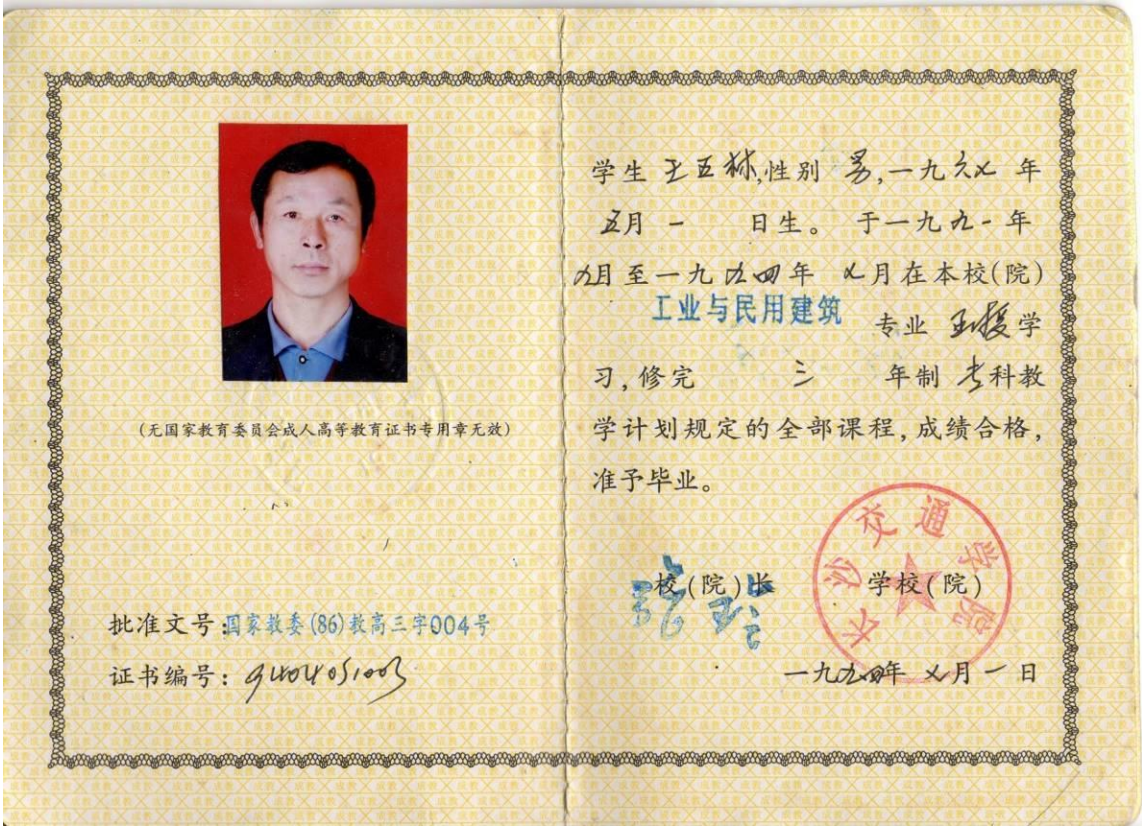 (无国家教育委员会成人高等教育证书专用章无效)
批准文号:国家教委(86)教高三字004号
证书编号:9404051003
学生 王五林,性别 男,一九六七 年
五月 一 日生。 于一九九一年
九月至一九九四年 七月在本校(院)
工业与民用建筑
专业 函授学
习,修完 三 年制 专科教
学计划规定的全部课程,成绩合格,
准予毕业。
校(院)长 学校(院)
长沙交通学院
一九九四年 七月一日